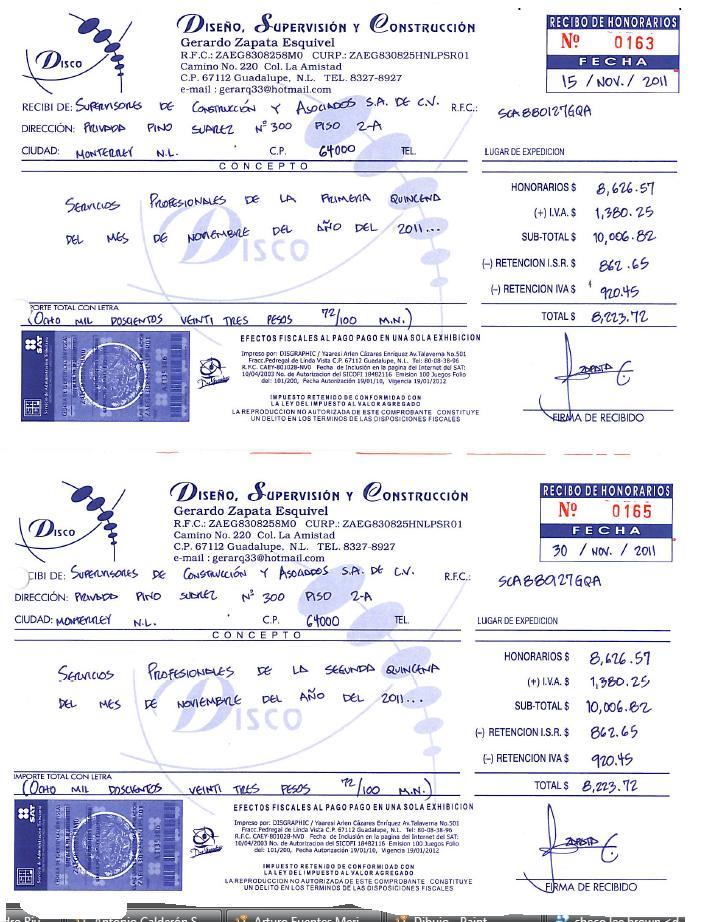 DISEÑO, SUPERVISIÓN Y CONSTRUCCIÓN
Gerardo Zapata Esquivel
R.F.C.: ZAEG8308258M0 CURP.: ZAEG830825HNLPSR01
Camino No. 220 Col. La Amistad
C.P. 67112 Guadalupe, N.L. TEL. 8327-8927
e-mail : gerarq33@hotmail.com
DISCO
RECIBO DE HONORARIOS
Nº 0163
FECHA
15 / NOV. / 2011
RECIBI DE: SUPERVISORES DE CONSTRUCCIÓN Y ASOCIADOS S.A. DE C.V. R.F.C.: SCA880127GQA
DIRECCIÓN: PRIVADA PINO SUAREZ Nº 300 PISO 2-A
CIUDAD: MONTERREY N.L. C.P. 64000 TEL. LUGAR DE EXPEDICION
CONCEPTO
SERVICIOS PROFESIONALES DE LA PRIMERA QUINCENA
DEL MES DE NOVIEMBRE DEL AÑO DEL 2011...
DISCO
HONORARIOS $ 8,626.57
(+) I.V.A. $ 1,380.25
SUB-TOTAL $ 10,006.82
(-) RETENCION I.S.R. $ 862.65
(-) RETENCION IVA $ 920.45
PORTE TOTAL CON LETRA
(OCHO MIL DOSCIENTOS VEINTI TRES PESOS 72/100 M.N.) TOTAL $ 8,223.72
SAT
EFECTOS FISCALES AL PAGO PAGO EN UNA SOLA EXHIBICION
Impreso por: DISGRAPHIC / Yaaresi Arlen Cázares Enríquez Av.Talaverna No.501
Fracc.Pedregal de Linda Vista C.P. 67112 Guadalupe, N.L. Tel: 80-08-38-96
R.F.C. CAEY-801028-NV0 Fecha de Inclusión en la pagina del Internet del SAT:
10/04/2003 No. de Autorizacion del SICOFI 18482116 Emision 100 Juegos Folio
del: 101/200, Fecha Autorización 19/01/10, Vigencia 19/01/2012
IMPUESTO RETENIDO DE CONFORMIDAD CON
LA LEY DEL IMPUESTO AL VALOR AGREGADO
LA REPRODUCCION NO AUTORIZADA DE ESTE COMPROBANTE CONSTITUYE
UN DELITO EN LOS TERMINOS DE LAS DISPOSICIONES FISCALES
ZAPATA
FIRMA DE RECIBIDO
DISEÑO, SUPERVISIÓN Y CONSTRUCCIÓN
Gerardo Zapata Esquivel
R.F.C.: ZAEG8308258M0 CURP.: ZAEG830825HNLPSR01
Camino No. 220 Col. La Amistad
C.P. 67112 Guadalupe, N.L. TEL. 8327-8927
e-mail : gerarq33@hotmail.com
DISCO
RECIBO DE HONORARIOS
Nº 0165
FECHA
30 / NOV. / 2011
CIBI DE: SUPERVISORES DE CONSTRUCCIÓN Y ASOCIADOS S.A. DE C.V. R.F.C.: SCA880127GQA
DIRECCIÓN: PRIVADA PINO SUAREZ Nº 300 PISO 2-A
CIUDAD: MONTERREY N.L. C.P. 64000 TEL. LUGAR DE EXPEDICION
CONCEPTO
SERVICIOS PROFESIONALES DE LA SEGUNDA QUINCENA
DEL MES DE NOVIEMBRE DEL AÑO DEL 2011...
DISCO
HONORARIOS $ 8,626.57
(+) I.V.A. $ 1,380.25
SUB-TOTAL $ 10,006.82
(-) RETENCION I.S.R. $ 862.65
(-) RETENCION IVA $ 920.45
IMPORTE TOTAL CON LETRA
(OCHO MIL DOSCIENTOS VEINTI TRES PESOS 72/100 M.N.) TOTAL $ 8,223.72
SAT
EFECTOS FISCALES AL PAGO PAGO EN UNA SOLA EXHIBICION
Impreso por: DISGRAPHIC / Yaaresi Arlen Cázares Enríquez Av.Talaverna No.501
Fracc.Pedregal de Linda Vista C.P. 67112 Guadalupe, N.L. Tel: 80-08-38-96
R.F.C. CAEY-801028-NV0 Fecha de Inclusión en la pagina del Internet del SAT:
10/04/2003 No. de Autorizacion del SICOFI 18482116 Emision 100 Juegos Folio
del: 101/200, Fecha Autorización 19/01/10, Vigencia 19/01/2012
IMPUESTO RETENIDO DE CONFORMIDAD CON
LA LEY DEL IMPUESTO AL VALOR AGREGADO
LA REPRODUCCION NO AUTORIZADA DE ESTE COMPROBANTE CONSTITUYE
UN DELITO EN LOS TERMINOS DE LAS DISPOSICIONES FISCALES
ZAPATA
FIRMA DE RECIBIDO